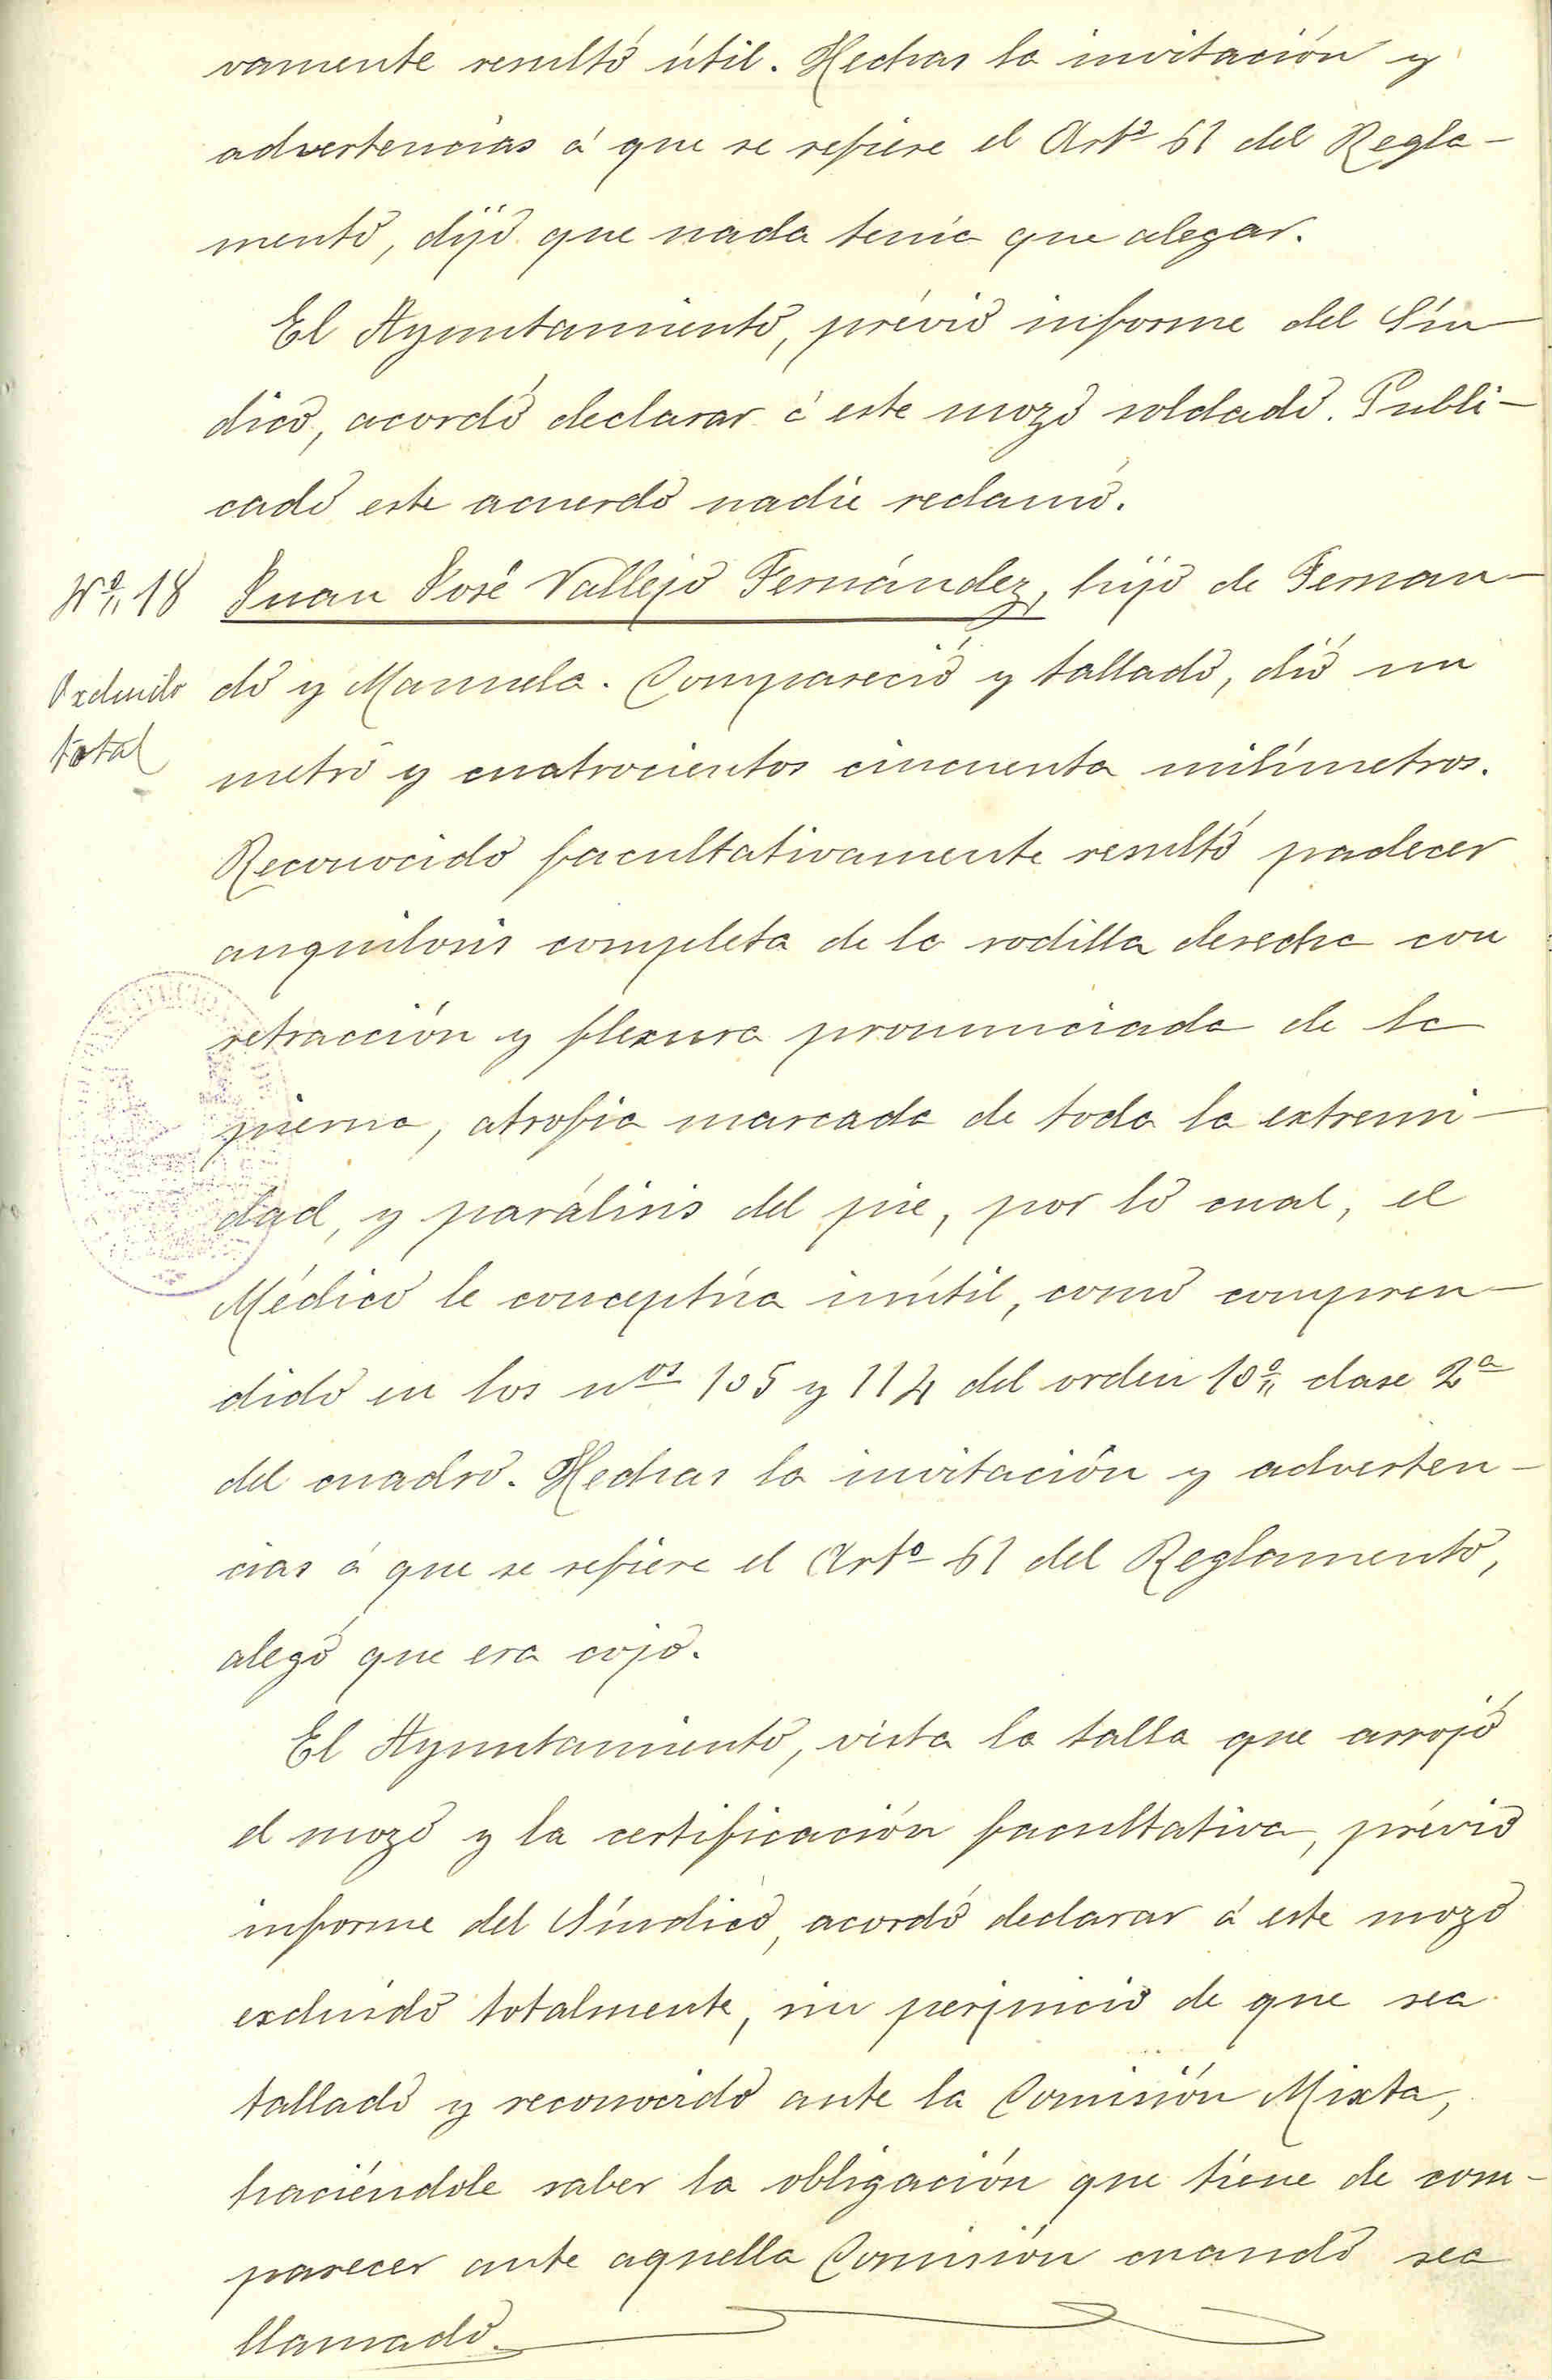 vamente resultó útil. Hechas la invitación y
advertencias á que se refiere el Artº 61 del Regla-
mento, dijo que nada tenía que alegar.
El Ayuntamiento, prévio informe del Sín-
dico, acordó declarar á este mozo soldado. Publi-
cado este acuerdo nadie reclamó.
Nº 18 Juan José Vallejo Fernández, hijo de Fernan-
Excluido
do y Manuela. Compareció y tallado, dió un
total
metro y cuatrocientos cincuenta milímetros.
Reconocido facultativamente resultó padecer
anquilosis completa de la rodilla derecha con
retracción y flexura pronunciada de la
pierna, atrofia marcada de toda la extremi-
dad, y parálisis del pie, por lo cual, el
Médico le conceptúa inútil, como compren-
dido en los nos 105 y 114 del orden 10º clase 2ª
del cuadro. Hechas la invitación y adverten-
cias á que se refiere el Artº 61 del Reglamento,
alegó que era cojo.
El Ayuntamiento, vista la talla que arrojó
el mozo y la certificación facultativa, prévio
informe del Síndico, acordó declarar á este mozo
excluido totalmente, sin perjuicio de que sea
tallado y reconocido ante la Comisión Mixta,
haciéndole saber la obligación que tiene de com-
parecer ante aquella Comisión cuando sea
llamado.